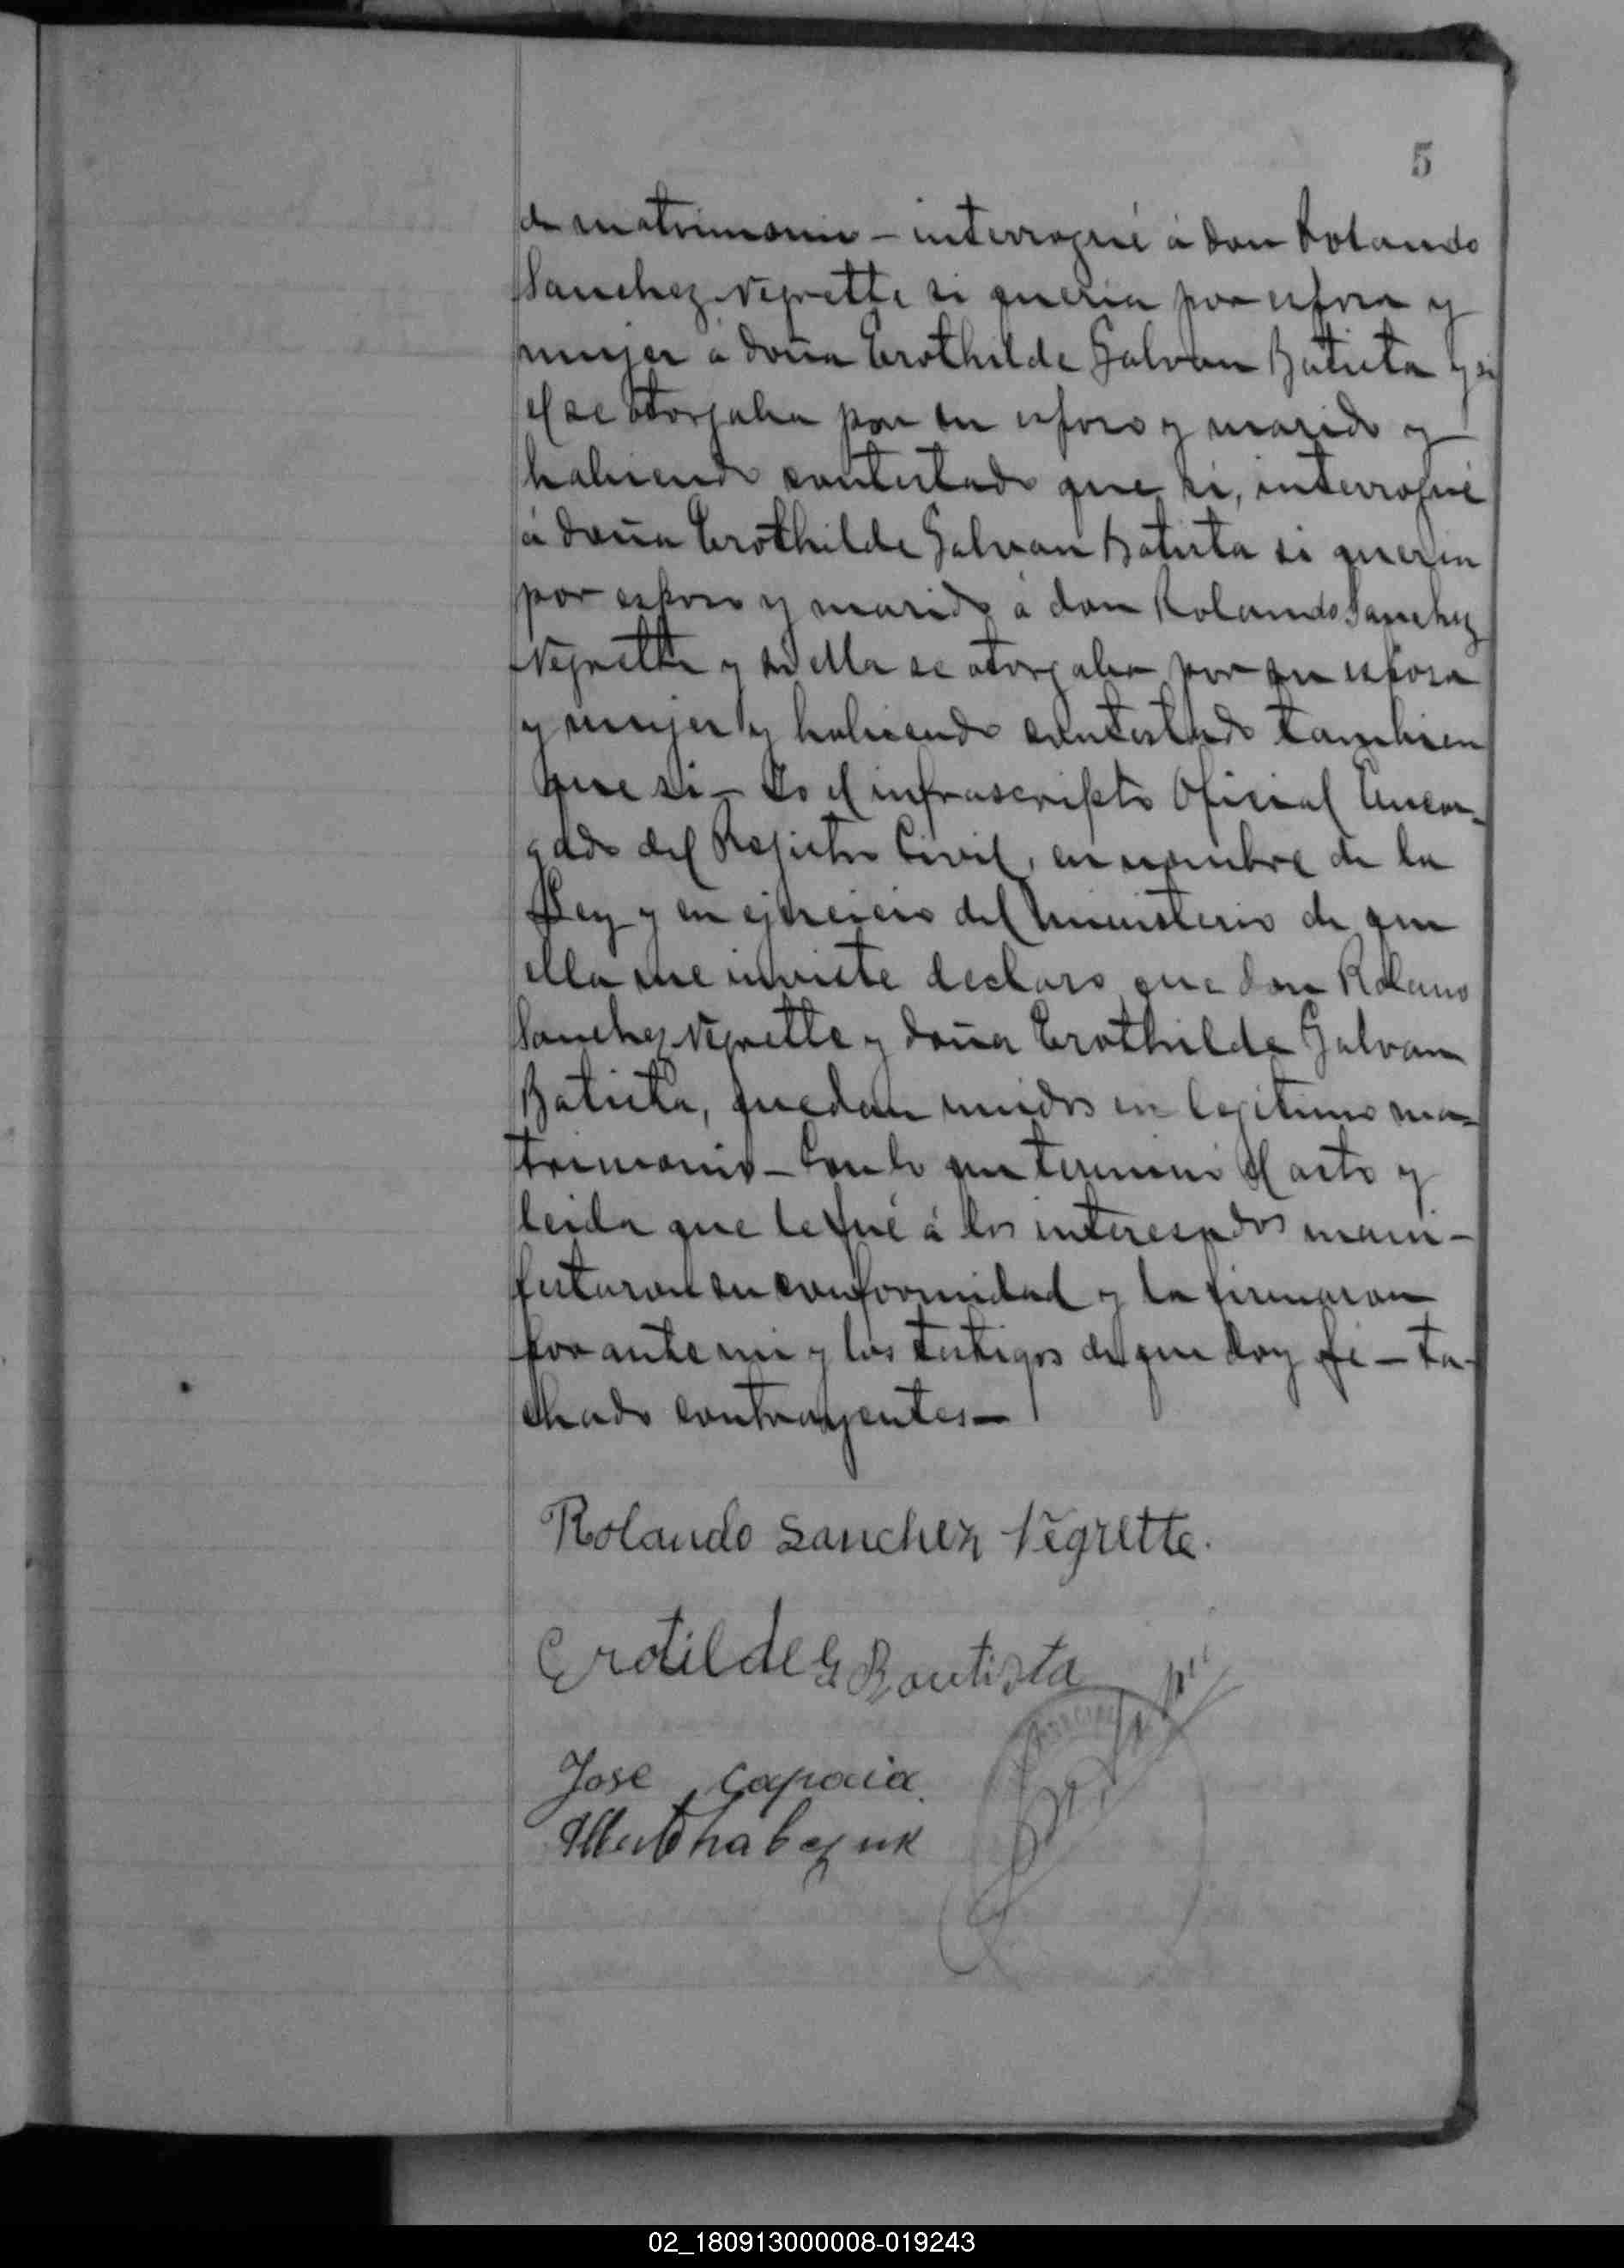 5
de matrimonio – interrogué á don Rolando
Sanchez Negrette si queria por esposa y
mujer á doña Erothilde Galvan Batista y si
el se otorgaba por su esposo y marido y
habiendo contestado que si, interrogué
á doña Erothilde Galvan Batista si queria
por esposo y marido á don Rolando Sanchez
Negrette y si ella se otorgaba por su esposa
y mujer y habiendo contestado tambien
que si – Yo el infrascripto Oficial Encar-
gado del Registro Civil, en nombre de la
Ley y en ejercicio del ministerio de que
ella me inviste declaro que don Rolano
Sanchez Negrette y doña Erothilde Galvan
Batista, quedan unidos en legitimo ma-
trimonio – Con lo que terminó el acto y
leida que le fué á los interesados mani-
festaron su conformidad y la firmaron
por ante mi y los testigos de que doy fé – ta-
chado contrayentes –
Rolando Sanchez Negrette.
Erotilde G Bautista
Jose Capocia
02_180913000008-019243